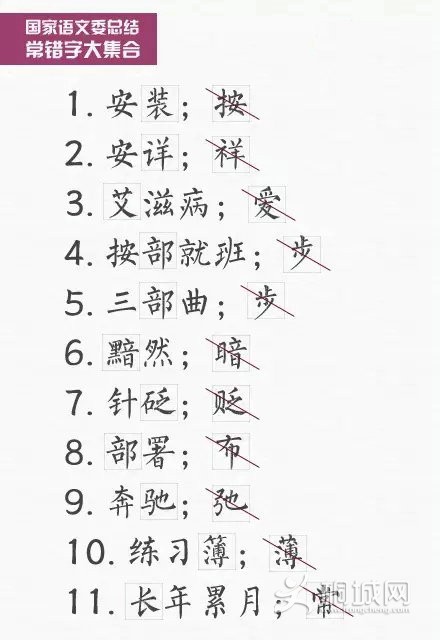 国家语文委总结
常错字大集合
1. 安装；按
2. 安详；祥
3. 艾滋病；爱
4. 按部就班；步
5. 三部曲；步
6. 黯然；暗
7. 针砭；贬
8. 部署；布
9. 奔驰；弛
10. 练习簿；薄
11. 长年累月；常